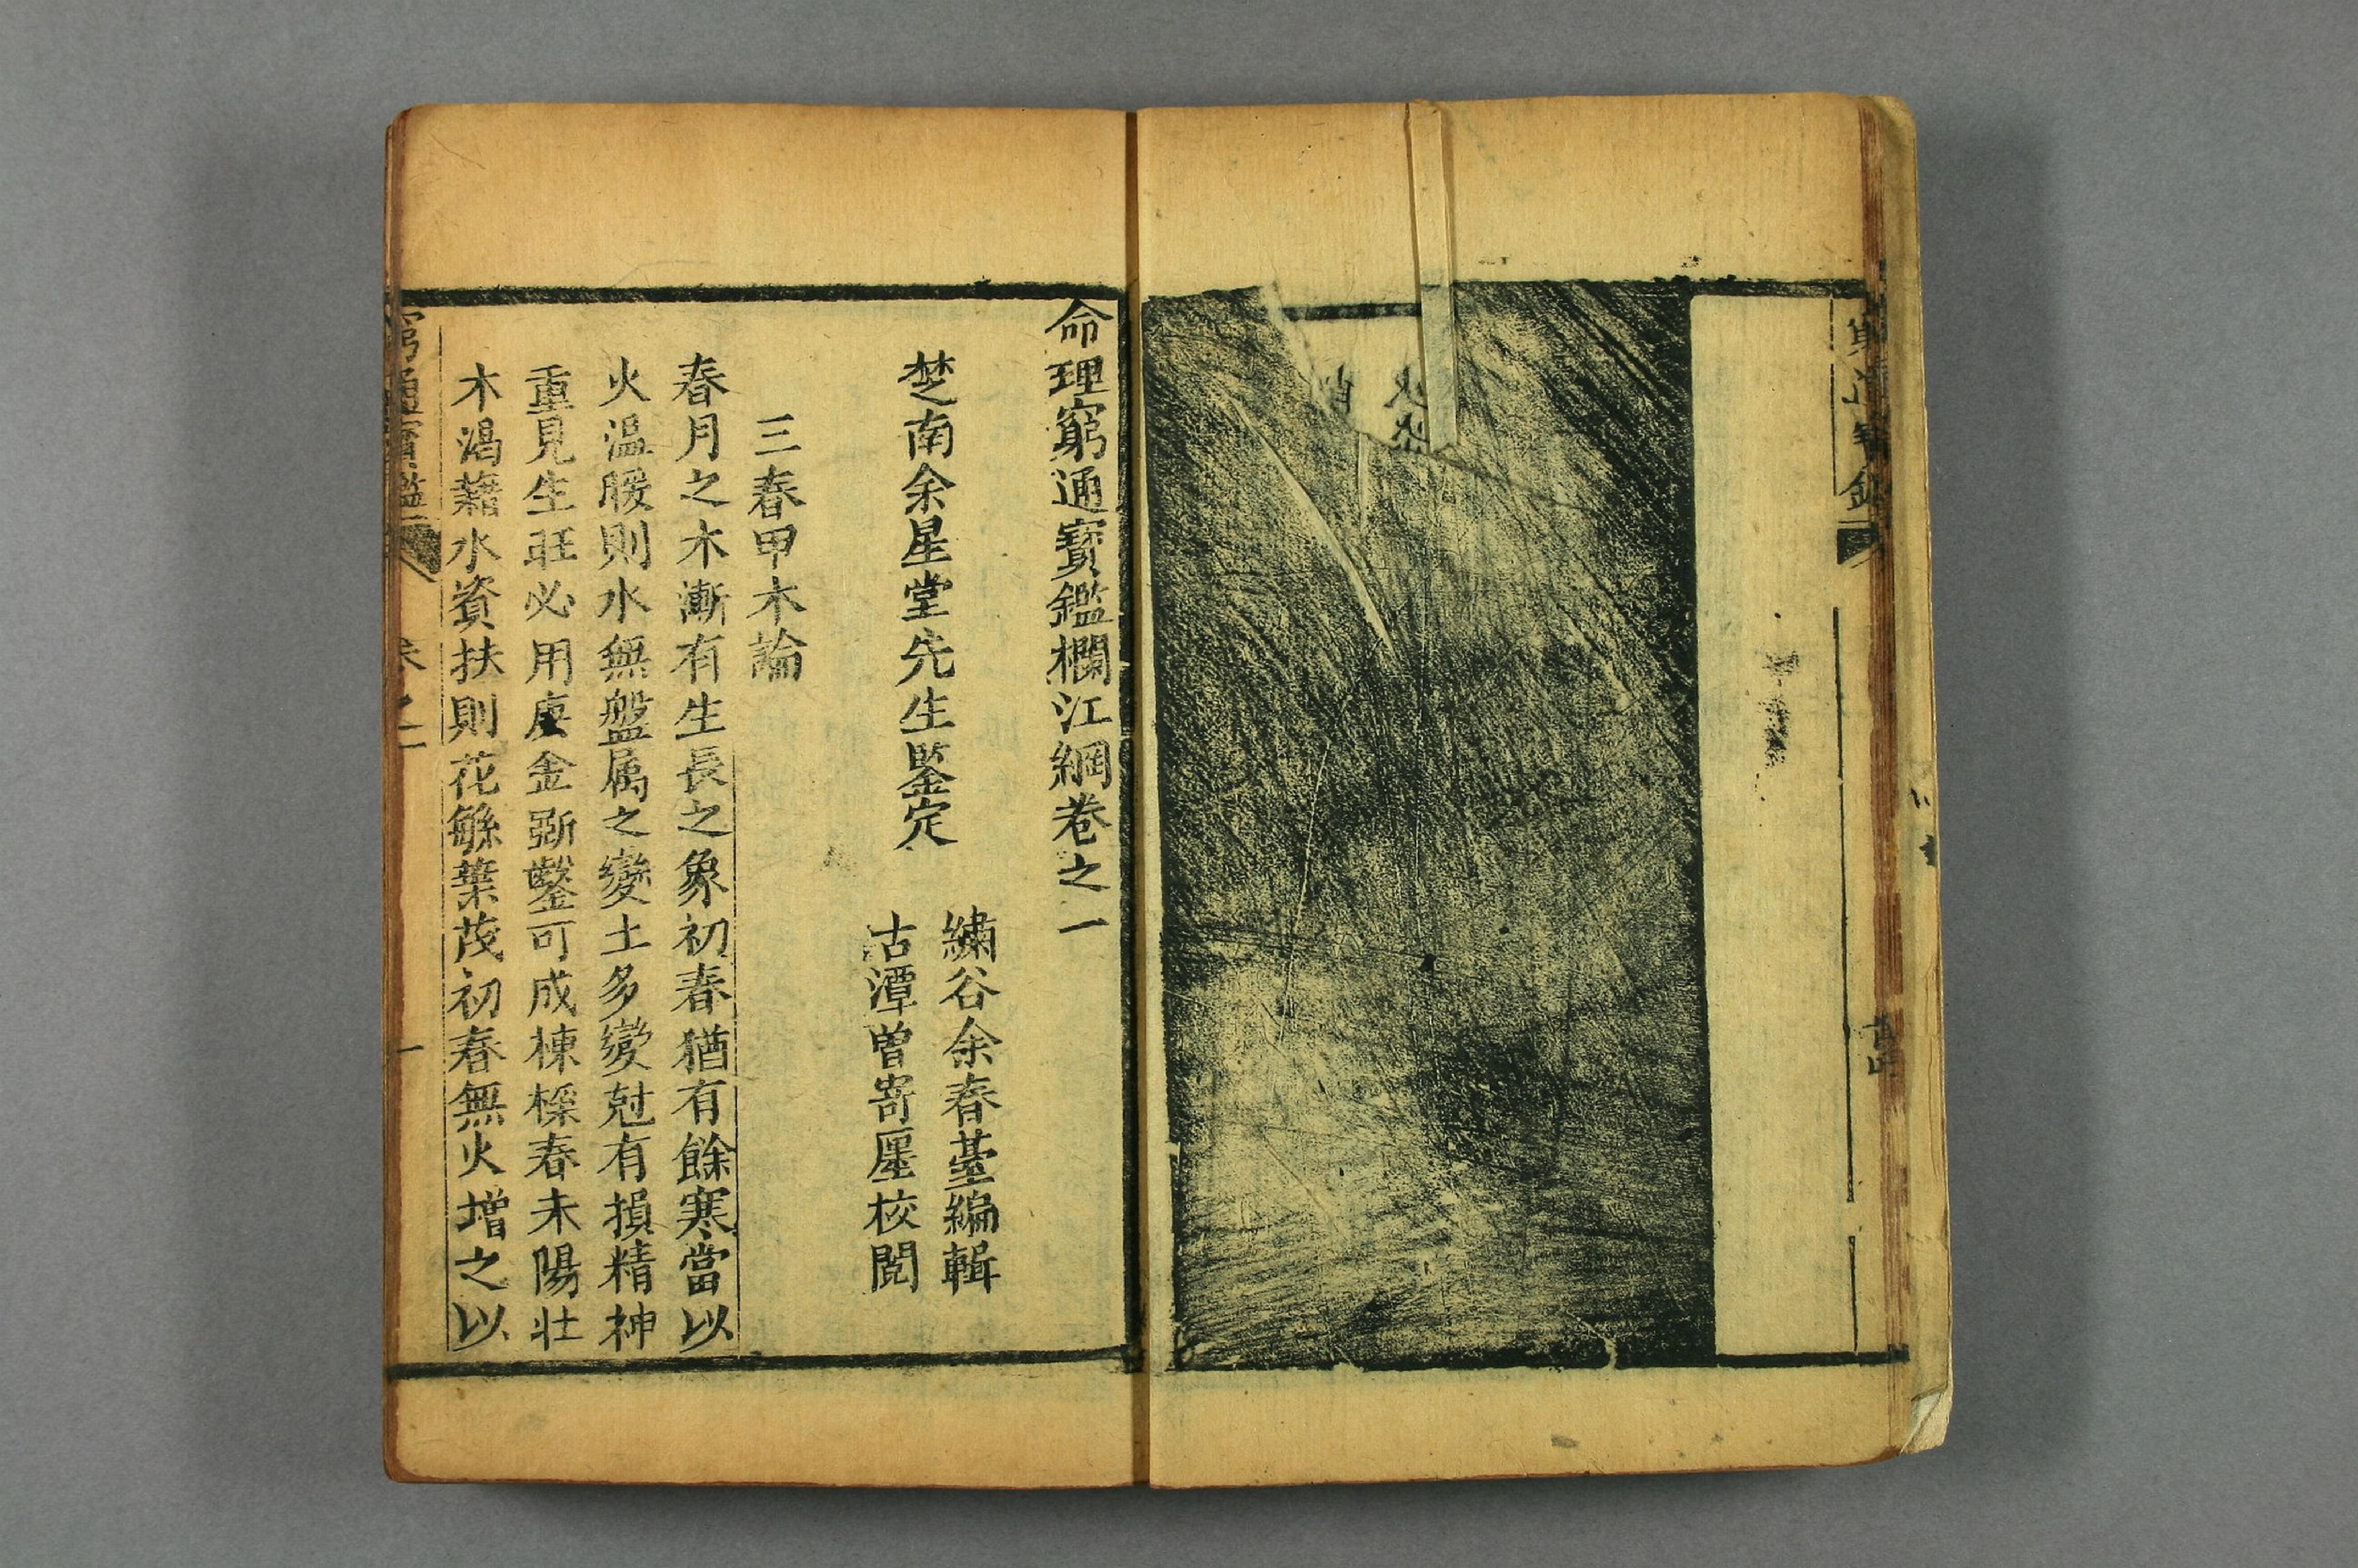 命理窮通寳鑑欄江綱卷之一
楚南余星堂先生鑒定
繡谷余春臺編輯
古潭曾寄厓校閱
三春甲木論
春月之木漸有生長之象初春猶有餘寒當以
火温暖則水無盤属之變土多變尅有損精神
重見生旺必用庚金斲鑿可成棟樑春未陽壮
木渴藉水資扶則花繁葉茂初春無火增之以
窮通寳鑑
卷之一
一